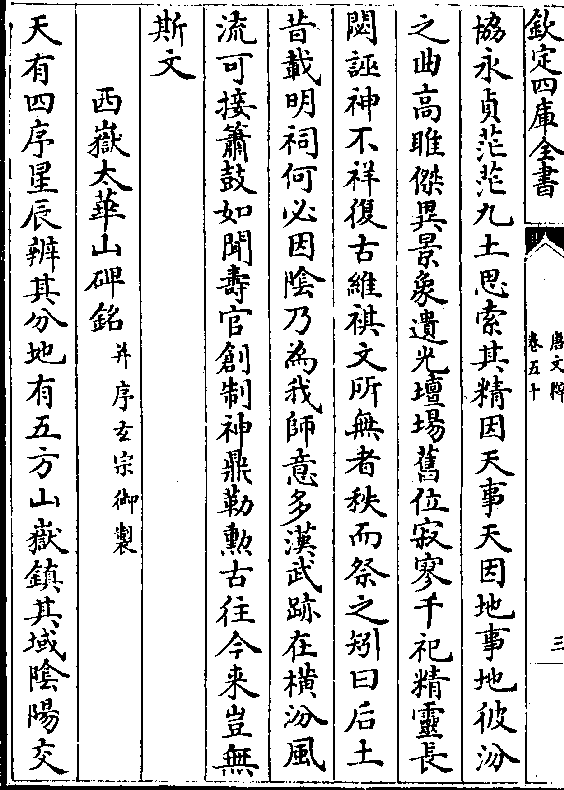 欽定四庫全書
唐文粹
卷五十
三
協永貞茫茫九土思索其精因天事天因地事地彼汾
之曲高雎傑異景象遺光壇場舊位寂寥千祀精靈長
閟誣神不祥復古維祺文所無者秩而祭之矧曰后土
昔載明祠何必因陰乃為我師意多漢武跡在橫汾風
流可接簫鼓如聞壽官創制神鼎勒勲古往今来豈無
斯文
西嶽太華山碑銘并序玄宗御製
天有四序星辰辨其分地有五方山嶽鎮其域陰陽交